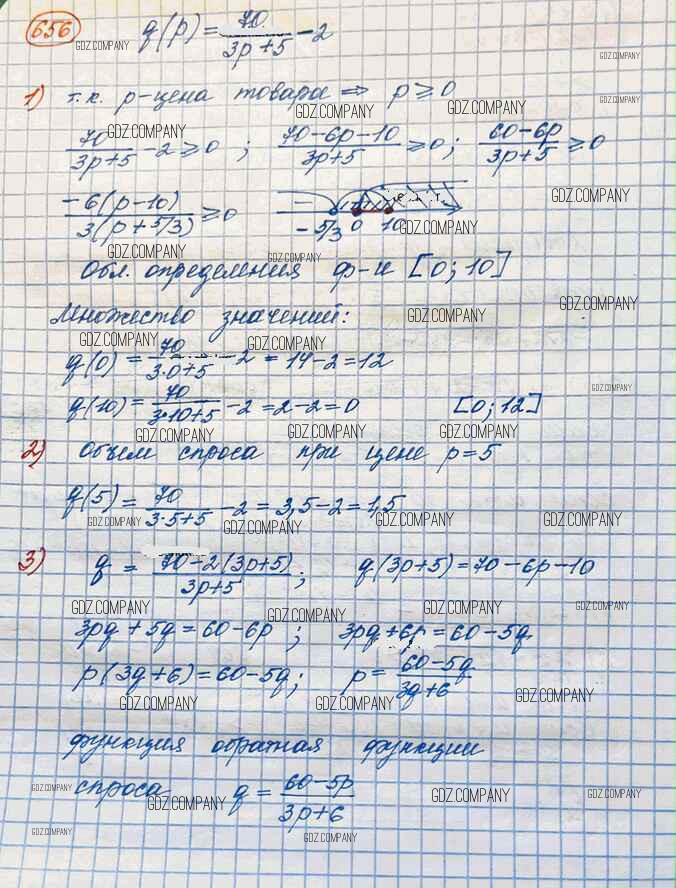 656 q(p) = 70/(3p+5) - 2
1) т.к. p-цена товара ⇒ p ≥ 0
70/(3p+5) - 2 ≥ 0 ; (70-6p-10)/(3p+5) ≥ 0 ; (60-6p)/(3p+5) ≥ 0
-6(p-10)/(3(p+5/3)) ≥ 0 - + - 5/3 0 10
Обл. определения ф-и [0; 10]
Множество значений:
q(0) = 70/(3·0+5) - 2 = 14-2 = 12
q(10) = 70/(3·10+5) - 2 = 2-2 = 0 [0; 12]
2) Объем спроса при цене p = 5
q(5) = 70/(3·5+5) - 2 = 3,5-2 = 1,5
3) q = (70-2(3p+5))/(3p+5) ; q(3p+5) = 70-6p-10
3pq + 5q = 60-6p ; 3pq + 6p = 60-5q
p(3q+6) = 60-5q ; p = (60-5q)/(3q+6)
функция обратная функции
спроса q = (60-5p)/(3p+6)
GDZ.COMPANY